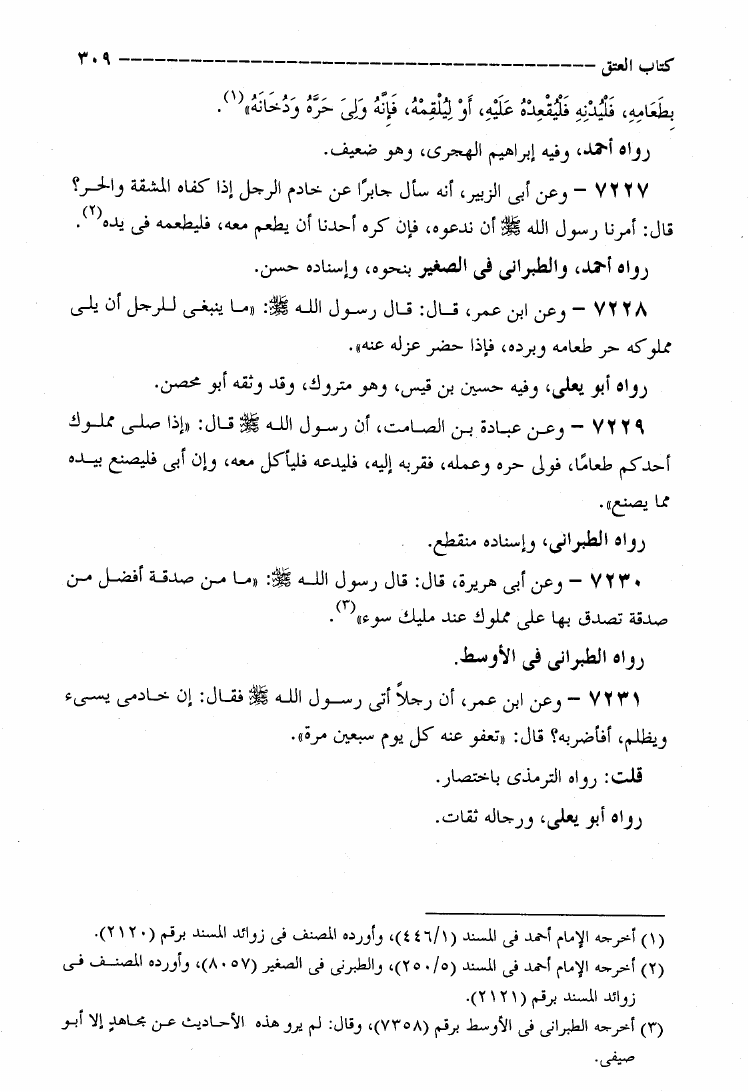 كتاب العتق ــــــــــــــــــــــــــــــــــــــــــــــــــــــــــــــــ ٣٠٩
بِطَعَامِهِ، فَلْيُدْنِهِ فَلْيُقْعِدْهُ عَلَيْهِ، أَوْ لِيُلْقِمْهُ، فَإِنَّهُ وَلِىَ حَرَّهُ وَدُخَانَهُ»(١).
رواه أحمد، وفيه إبراهيم الهجرى، وهو ضعيف.
٧٢٢٧ - وعن أبى الزبير، أنه سأل جابرًا عن خادم الرجل إذا كفاه المشقة والحر؟
قال: أمرنا رسول الله ﷺ أن ندعوه، فإن كره أحدنا أن يطعم معه، فليطعمه فى يده(٢).
رواه أحمد، والطبرانى فى الصغير بنحوه، وإسناده حسن.
٧٢٢٨ - وعن ابن عمر، قال: قال رسول الله ﷺ: «ما ينبغى للرجل أن يلى
مملوكه حر طعامه وبرده، فإذا حضر عزله عنه».
رواه أبو يعلى، وفيه حسين بن قيس، وهو متروك، وقد وثقه أبو محصن.
٧٢٢٩ - وعن عبادة بن الصامت، أن رسول الله ﷺ قال: «إذا صلى مملوك
أحدكم طعامًا، فولى حره وعمله، فقربه إليه، فليدعه فليأكل معه، وإن أبى فليصنع بيده
مما يصنع».
رواه الطبرانى، وإسناده منقطع.
٧٢٣٠ - وعن أبى هريرة، قال: قال رسول الله ﷺ: «ما من صدقة أفضل من
صدقة تصدق بها على مملوك عند مليك سوء»(٣).
رواه الطبرانى فى الأوسط.
٧٢٣١ - وعن ابن عمر، أن رجلاً أتى رسول الله ﷺ فقال: إن خادمى يسىء
ويظلم، أفأضربه؟ قال: «تعفو عنه كل يوم سبعين مرة».
قلت: رواه الترمذى باختصار.
رواه أبو يعلى، ورجاله ثقات.
(١) أخرجه الإمام أحمد فى المسند (٤٤٦/١)، وأورده المصنف فى زوائد المسند برقم (٢١٢٠).
(٢) أخرجه الإمام أحمد فى المسند (٢٥٠/٥)، والطبرنى فى الصغير (٨٠٥٧)، وأورده المصنف فى
زوائد المسند برقم (٢١٢١).
(٣) أخرجه الطبرانى فى الأوسط برقم (٧٣٥٨)، وقال: لم يرو هذه الأحاديث عن مجاهدٍ إلا أبو
صيفى.